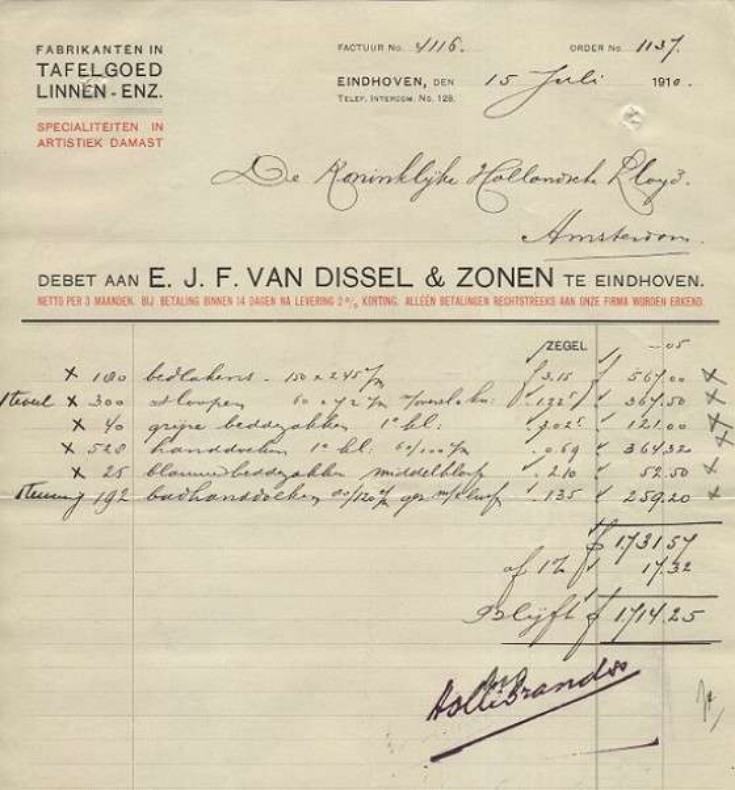 FABRIKANTEN IN
TAFELGOED
LINNEN - ENZ.
SPECIALITEITEN IN
ARTISTIEK DAMAST
FACTUUR No. 4116. ORDER No. 1137.
EINDHOVEN, DEN 15 Juli 1910.
TELEF. INTERCOM. No. 128.
De Koninklijke Hollandsche Lloyd.
Amsterdam.
DEBET AAN E. J. F. VAN DISSEL & ZONEN TE EINDHOVEN.
NETTO PER 3 MAANDEN. BIJ BETALING BINNEN 14 DAGEN NA LEVERING 2% KORTING. ALLÉÉN BETALINGEN RECHTSTREEKS AAN ONZE FIRMA WORDEN ERKEND.
ZEGEL -.05
x 180 bedlakens - 150 x 245 f 3.15 f 567.00 x
x 300 sloopen 60 x 72 1.225 367.50 x
x 40 grijze beddezakken 1e kl: 3.025 121.00 x
x 528 handdoeken 1e kl: 60/100 .069 364.32 x
x 25 blauwe beddezakken 2.10 52.50 x
192 badhanddoeken 1.35 259.20 x
f 1731.57
af 1% 17.32
Blijft f 1714.25